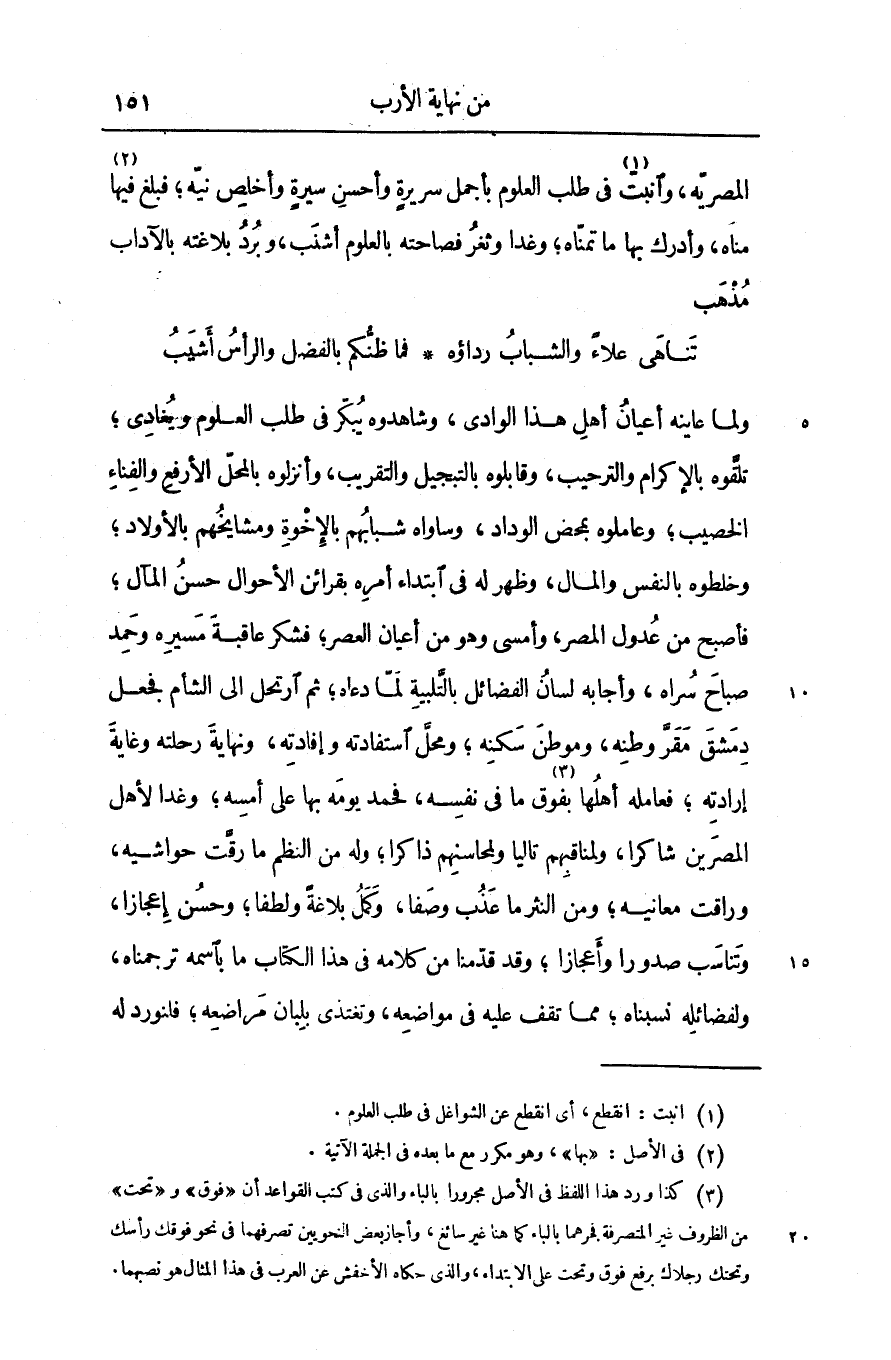 من نهاية الأرب ١٥١
المصريّه، وٱنبتّ (١) فى طلب العلوم بأجمل سريرةٍ وأحسنِ سيرةٍ وأخلصِ نيّه؛ فبلغ فيها (٢)
مناه، وأدرك بها ما تمنّاه؛ وغدا وثغرُ فصاحته بالعلوم أشنَب، وبُردُ بلاغته بالآداب
مُذْهَب
تَنـاهَى علاءً والشـبابُ رداؤه * فما ظنُّكم بالفضل والرأسُ أَشيَبُ
ولمـا عاينه أعيانُ أهلِ هـذا الوادى، وشاهدوه يُبكّر فى طلب العـلوم ويُغادِى؛ ٥
تلقَّوه بالإكرام والترحيب، وقابلوه بالتبجيل والتقريب، وأنزلوه بالمحلّ الأرفعِ والفِناءِ
الخصيب؛ وعاملوه بمحض الوداد، وساواه شـبابُهم بالإخْوةِ ومشايخُهم بالأولاد؛
وخلطوه بالنفس والمـال، وظهر له فى ٱبتداء أمرِه بقرائن الأحوال حسنُ المآل؛
فأصبح من عُدول المصر، وأمسى وهو من أعيان العصر؛ فشكر عاقبـةَ مَسيرِه وحَمِد
صباحَ سُراه، وأجابه لسانُ الفضائل بالتَّلبيةِ لمَـّا دعاه؛ ثم ٱرتحل الى الشأم فجعـل ١٠
دِمَشقَ مَقَرَّ وطنِه، وموطنَ سَكنِه؛ ومحلَّ ٱستفادته وإفادتِه، ونهايةَ رحلته وغايةَ
إرادتِه؛ فعامله أهلُها بفوق (٣) ما فى نفسِـه، فحمد يومَه بها على أمسِه؛ وغدا لأهل
المصرَين شاكرا، ولمناقبِهم تاليا ولمحاسنِهم ذاكرا؛ وله من النظم ما رقَّت حواشـيه،
وراقت معانيـه؛ ومن النثر ما عَذُب وصَفا، وكَمَلُ بلاغةً ولطفا؛ وحسُن إعجازا،
وتَناسَب صدورا وأَعجازا؛ وقد قدّمنا من كلامه فى هذا الكتاب ما بٱسمه ترجمناه، ١٥
ولفضائلِه نسبناه؛ ممـا تقف عليه فى مواضعِه، وتغتذى بلِبان مَراضعِه؛ فلنورد له
(١) انبت : انقطع، أى انقطع عن الشواغل فى طلب العلوم .
(٢) فى الأصل : «بها»، وهو مكرر مع ما بعده فى الجملة الآتية .
(٣) كذا ورد هذا اللفظ فى الأصل مجرورا بالباء والذى فى كتب القواعد أن «فوق» و «تحت»
من الظروف غير المتصرفة فجرهما بالباء كما هنا غير سائغ، وأجاز بعض النحويين تصرفهما فى نحو فوقك رأسك ٢٠
وتحتك رجلاك برفع فوق وتحت على الابتداء، والذى حكاه الأخفش عن العرب فى هذا المثال هو نصبهما .